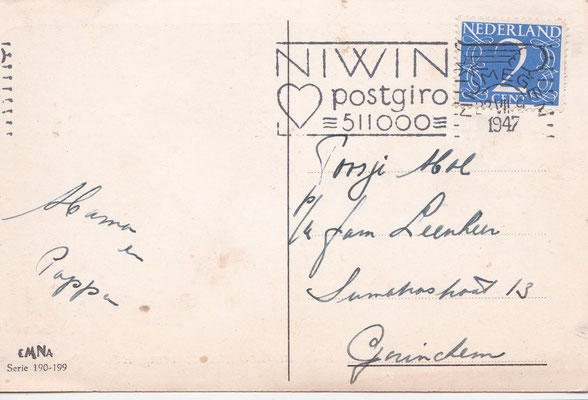 NEDERLAND
2
CENT
NIWIN
postgiro
511000
NIJMEGEN
1947
Mama
en
Pappa
Mol
p/a fam Leenheer
Sumatrastraat 13
Gorinchem
EMNA
Serie 190-199